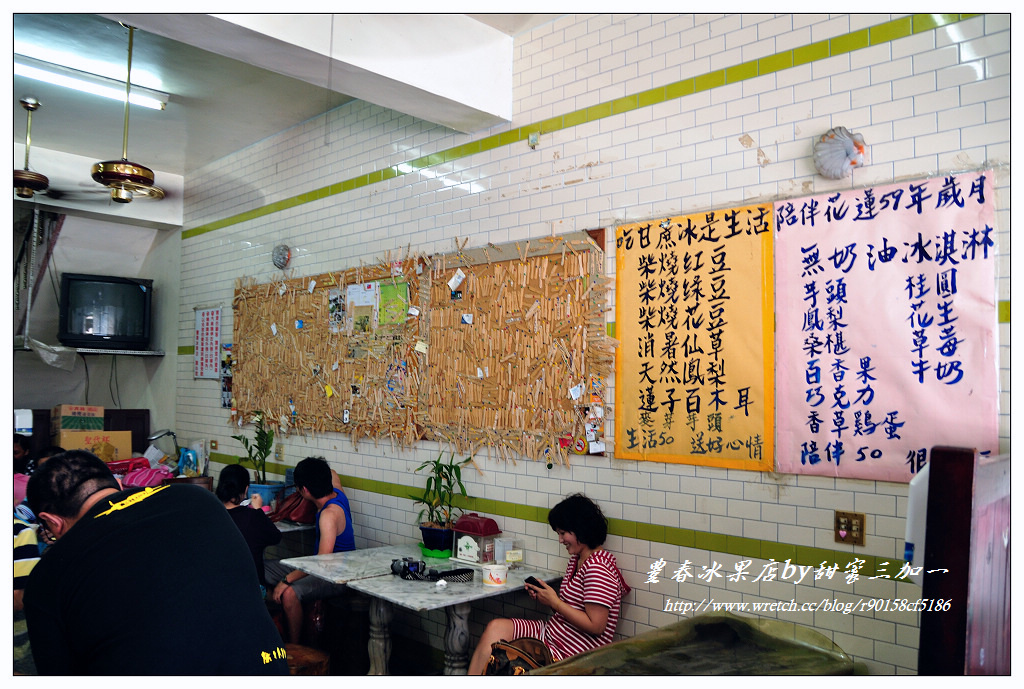 吃甘蔗冰是生活
柴燒红豆
柴燒绿豆
柴燒花豆
消暑仙草
天然鳳梨
蓮子百木耳
麥芽芋頭
生活50 送好心情
陪伴花蓮59年歲月
無奶油冰淇淋
芋頭 桂圓
鳳梨 花生
桑椹 草莓
百香果 牛奶
巧克力
香草鷄蛋
陪伴50 很
豐春冰果店by甜蜜三加一
http://www.wretch.cc/blog/r90158cf5186